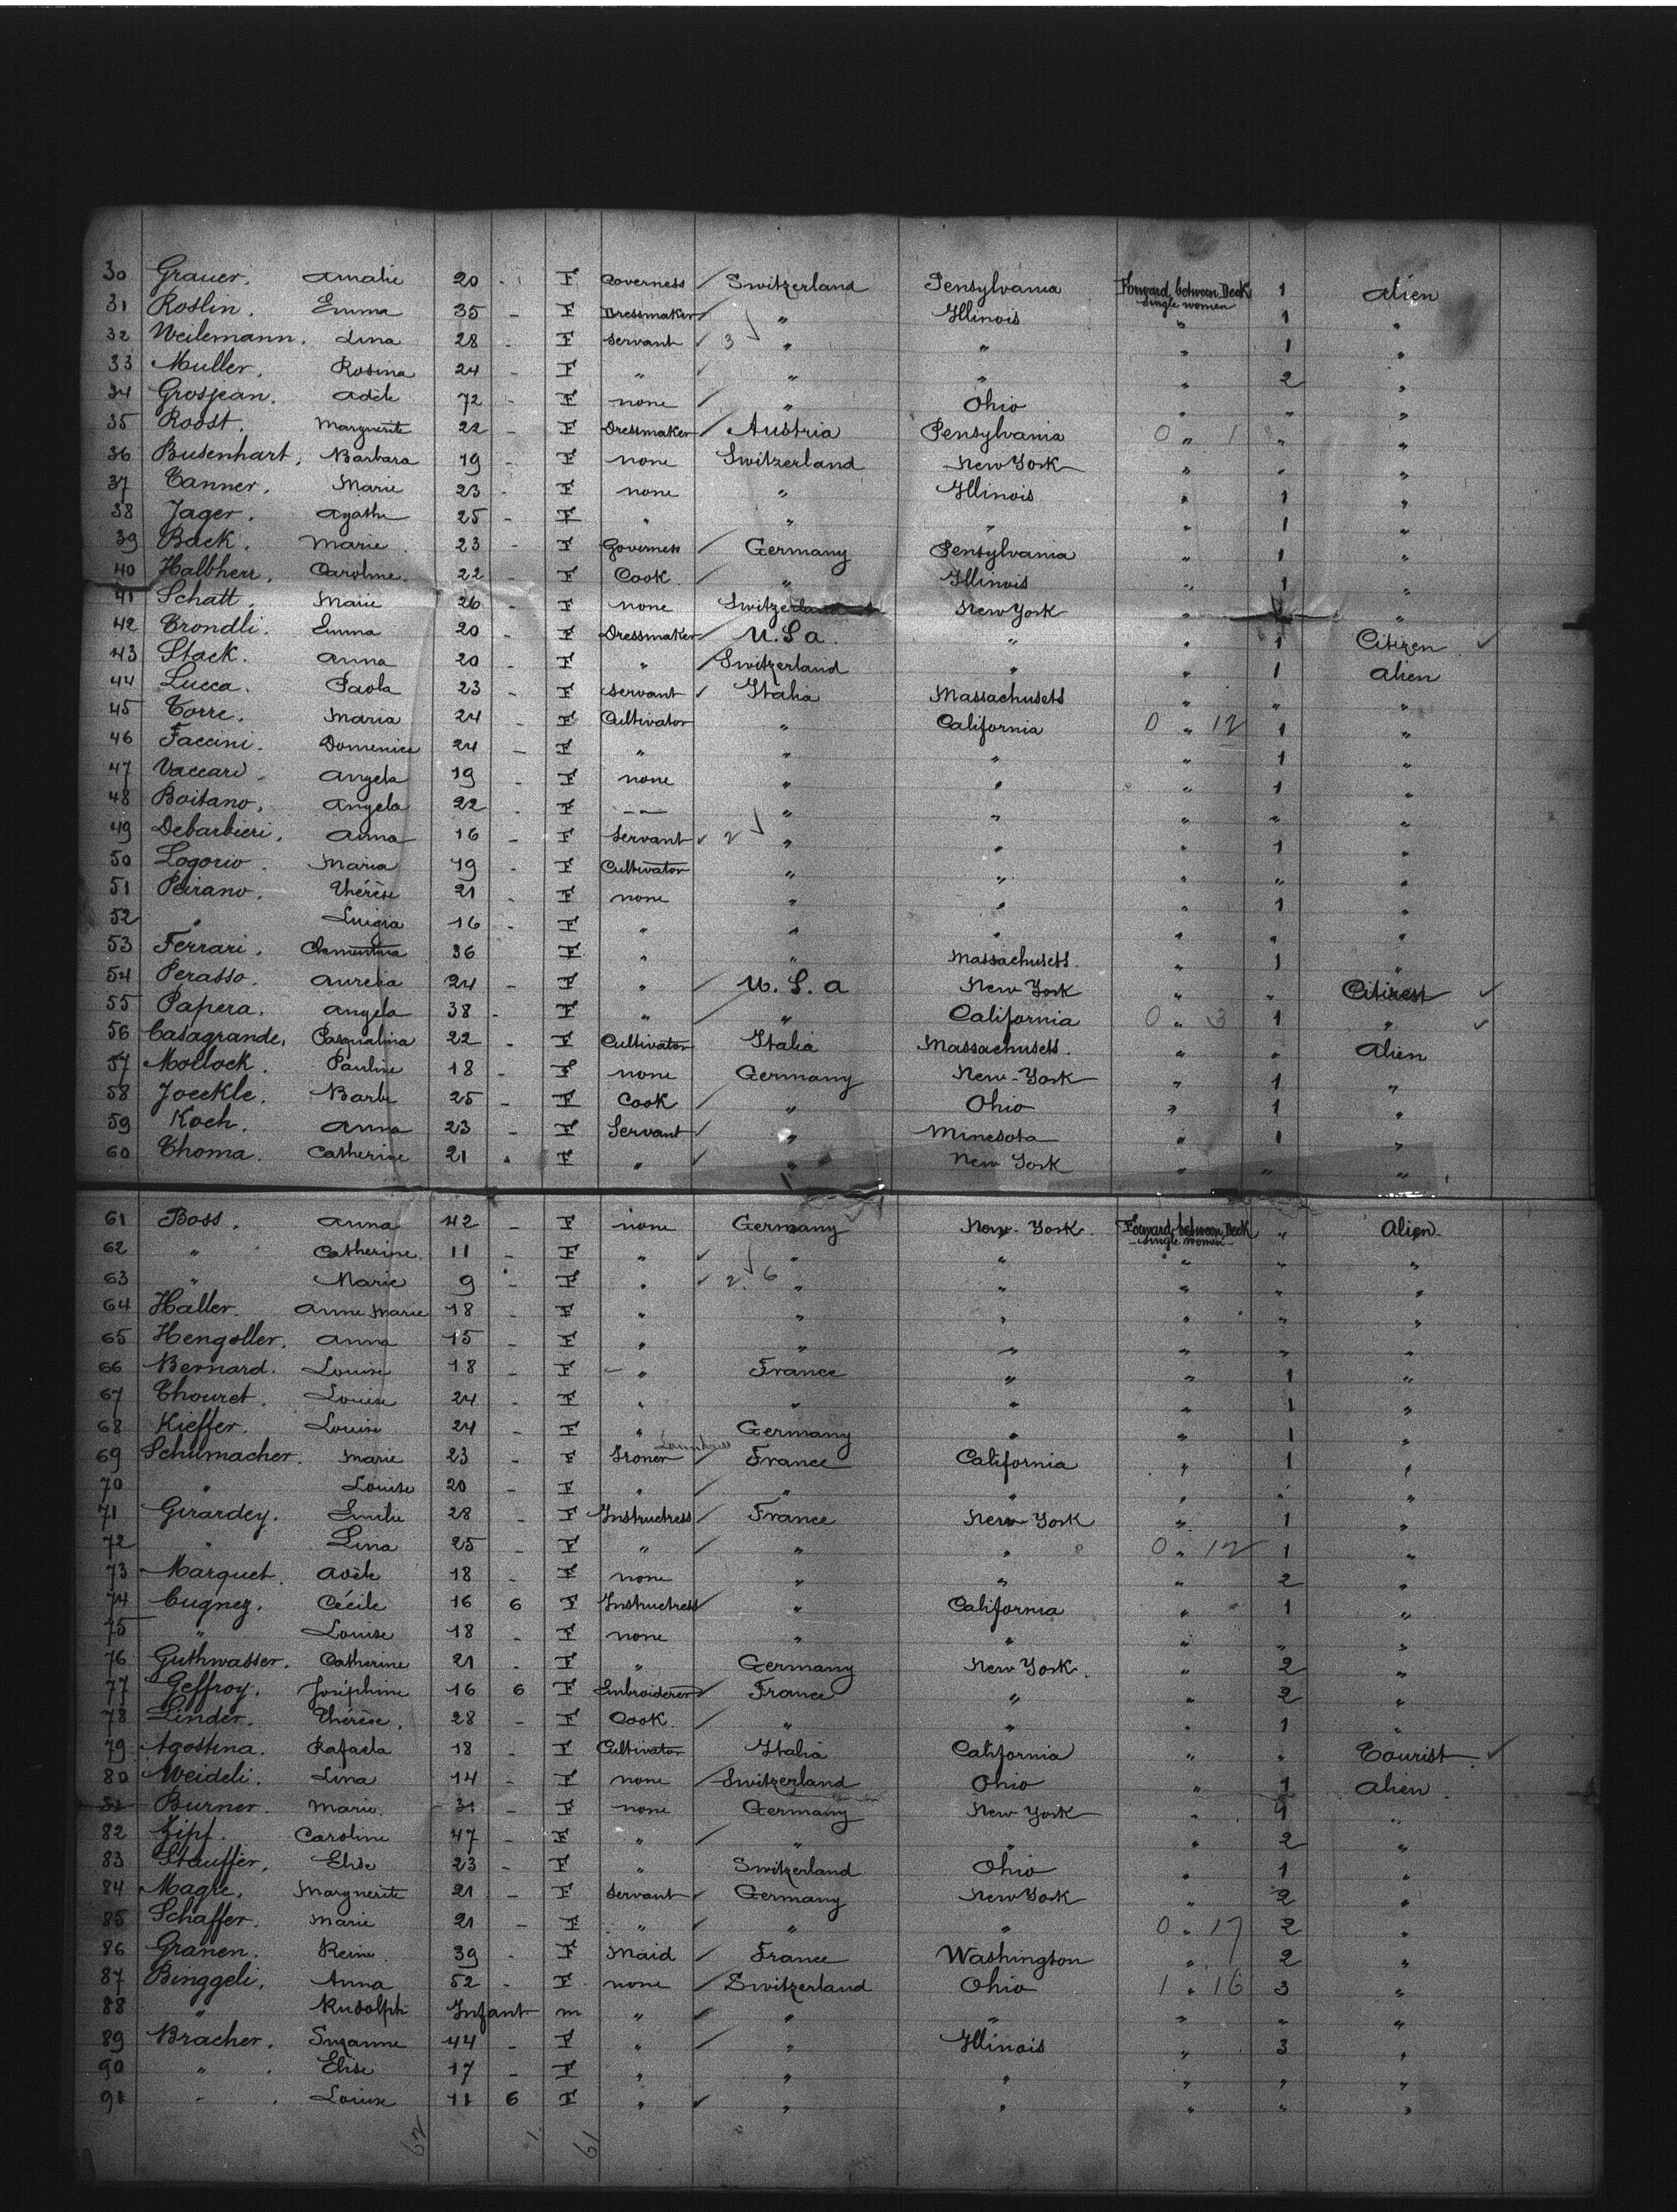 30 Grauer. Amalie 20 - F Governess Switzerland Pensylvania Forward between Deck single women 1 Alien
31 Roslin. Emma 35 - F Dressmaker " Illinois " 1 "
32 Weilemann. Lina 28 - F Servant 3 " " " 1 "
33 Muller. Rosina 24 - F " " " " 2 "
34 Grosjean. Adèle 72 - F none " Ohio " " "
35 Roost. Marguerite 22 - F Dressmaker Austria Pensylvania 0 " 1 " "
36 Busenhart, Barbara 19 - F none Switzerland New York " " "
37 Tanner. Marie 23 - F none " Illinois " 1 "
38 Jager. Agathe 25 - F " " " " 1 "
39 Back. Marie 23 - F Governess Germany Pensylvania " 1 "
40 Halbherr. Caroline. 22 - F Cook " Illinois " 1 "
41 Schatt. Marie 26 - F none Switzerland New York " "
42 Trondli. Emma 20 - F Dressmaker U.S.a. " " 1 Citizen
43 Stack. Anna 20 - F " Switzerland " " 1 Alien
44 Lucca. Paola 23 - F Servant Italia Massachusets " " "
45 Torre. Maria 24 - F Cultivator " California 0 " 12 1 "
46 Faccini. Domenica 24 - F " " " " 1 "
47 Vaccari Angela 19 - F none " " " 1 "
48 Boitano. Angela 22 - F - - " " " " "
49 Debarbieri. Anna 16 - F Servant 2 " " " 1 "
50 Logorio. Maria 19 - F Cultivator " " " " "
51 Peirano. Thérèse 21 - F none " " " 1 "
52 " Luigia 16 - F " " " " " "
53 Ferrari. Clementina 36 F " " Massachusets. " 1 "
54 Perasso. Aurelia 24 - F " U.S.a New York " "
55 Papera. Angela 38 - F " " California 0 " 3 1 "
56 Casagrande, Pasqualina 22 - F Cultivator Italia Massachusets. " " Alien
57 Mollock. Pauline 18 - F none Germany New-York " 1 "
58 Joeckle. Barbe 25 - F Cook " Ohio " 1 "
59 Koch. Anna 23 - F Servant " Minesota " 1 "
60 Thoma. Catherine 21 - F " " New York " " "
61 Boss. Anna 42 - F none Germany New-York. Forward between Deck single women " Alien.
62 " Catherine. 11 - F " " " " " "
63 " Marie 9 - F " 2. 6 " " " " "
64 Haller. Anne Marie 18 - F " " " " " "
65 Hengoller. Anna 15 - F " " " " " "
66 Bernard. Louise 18 - F " France " " 1 "
67 Thouret. Louise 24 - F " " " " 1 "
68 Kieffer. Louise 24 - F " Germany " " 1 "
69 Schumacher. Marie 23 - F Ironer Laundress France California " 1 "
70 " Louise 20 - F " " " " " "
71 Girardey. Emilie 28 - F Instructress France New-York " 1 "
72 " Lina 25 - F " " " 0 " 12 1 "
73 Marquet. Adèle 18 - F none " " " 2 "
74 Cugnez. Cécile 16 6 F Instructress " California " 1 "
75 " Louise 18 - F none " " " " "
76 Guthwasser. Catherine 21 - F " Germany New York. " 2 "
77 Geffroy. Joséphine 16 6 F Embroiderer France " " 2 "
78 Linder. Thérèse. 28 - F Cook. " " " 1 "
79 Agostina. Rafaela 18 - F Cultivator Italia California " " Tourist
80 Weideli. Lina 14 - F none Switzerland Ohio " 1 Alien.
81 Burner. Marie. 31 - F none Germany New York " "
82 Zipf. Caroline 47 - F " " " " 2 "
83 Stauffer. Elise 23 - F " Switzerland Ohio " 1 "
84 Magre. Marguerite 21 - F Servant Germany New York " 2 "
85 Schaffer. Marie 21 - F " " " 0 " 17 2 "
86 Granen. Reine 39 - F Maid France Washington " 2 "
87 Binggeli. Anna 52 - F none Switzerland Ohio 1 " 16 3 "
88 " Rudolph Infant m " " " " " "
89 Bracher. Suzanne 44 - F " " Illinois " 3 "
90 " Elise 17 - F " " " " " "
91 - Louise 11 6 F " " " " " "
62 1. 61